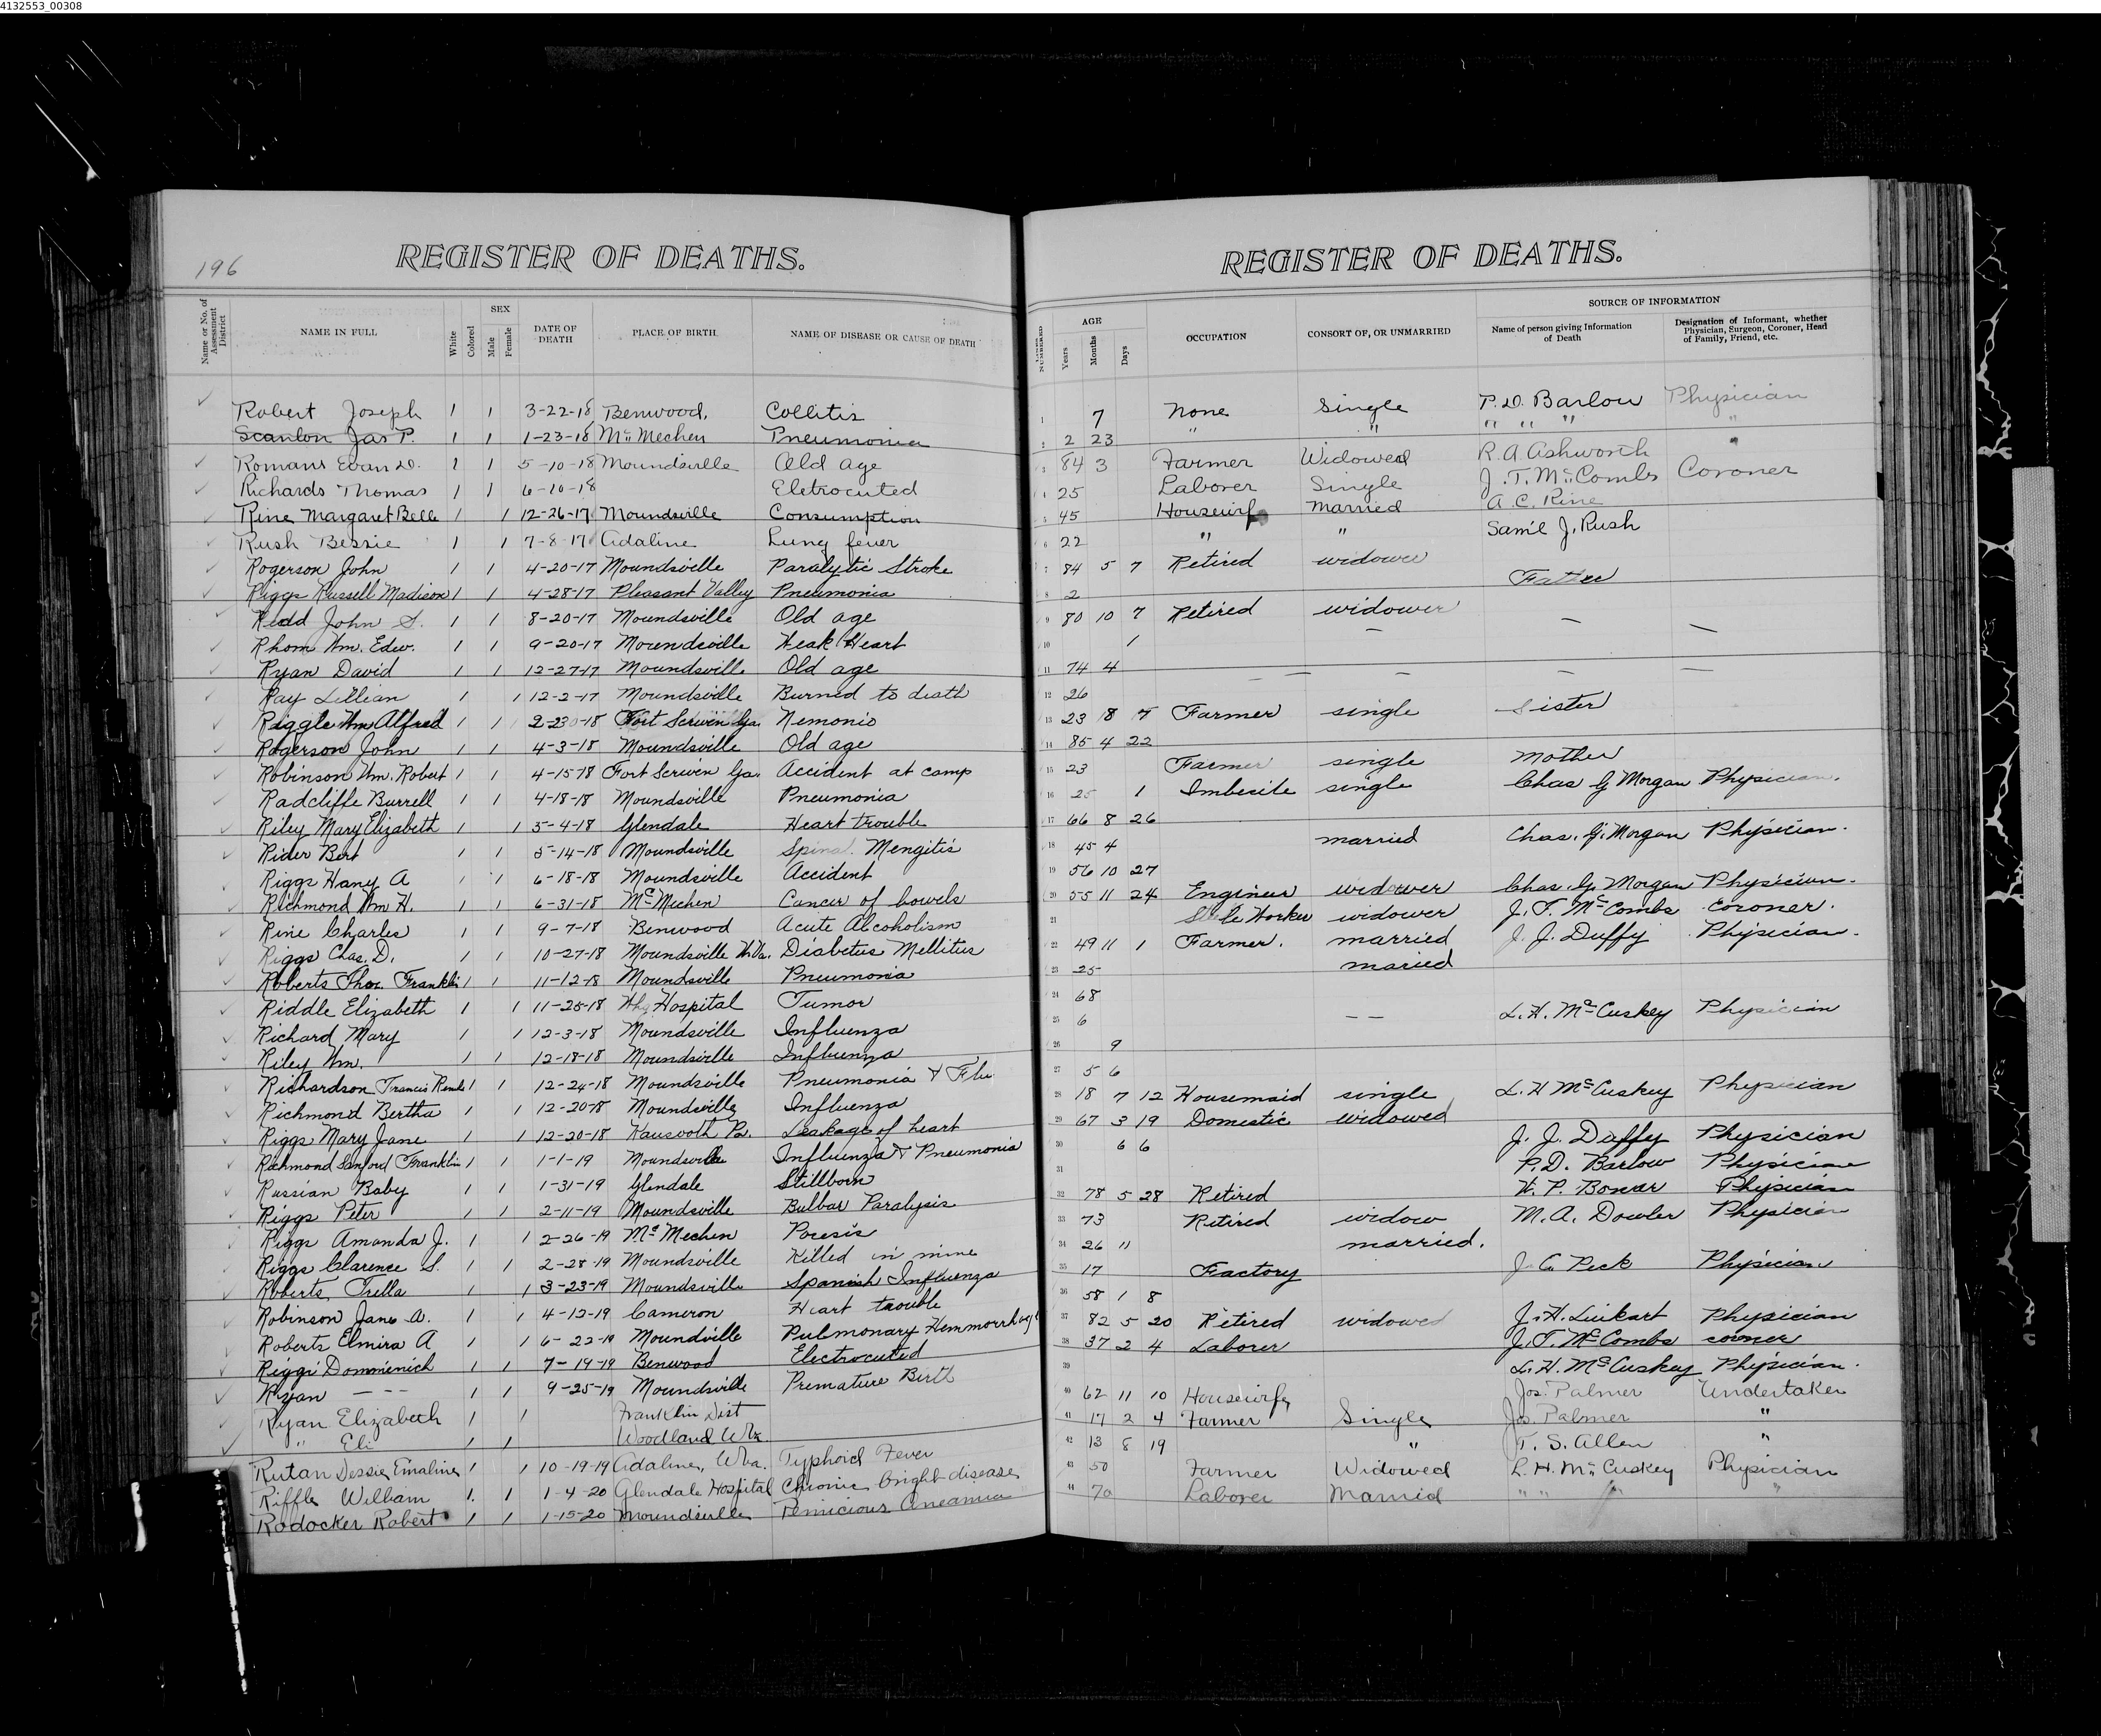 4132553_00308
196
REGISTER OF DEATHS.
Name or No. of Assessment District
NAME IN FULL
White
Colored
SEX
Male
Female
DATE OF DEATH
PLACE OF BIRTH
NAME OF DISEASE OR CAUSE OF DEATH
Robert Joseph 1 1 3-22-18 Benwood, Collitis
Scanlon Jas P. 1 1 1-23-18 Mc Mechen Pneumonia
Romans Evan D. 1 1 5-10-18 Moundsville Old age
Richards Thomas 1 1 6-10-18 Eletrocuted
Rine Margaret Belle 1 1 12-26-17 Moundsville Consumption
Rush Bessie 1 1 7-8-17 Adaline Lung fever
Rogerson John 1 1 4-20-17 Moundsville Paralytic Stroke
Riggs Russell Madison 1 1 4-28-17 Pleasant Valley Pneumonia
Redd John S. 1 1 8-20-17 Moundsville Old age
Rhom Wm. Edw. 1 1 9-20-17 Moundsville Weak Heart
Ryan David 1 1 12-27-17 Moundsville Old age
Ray Lillian 1 1 12-2-17 Moundsville Burned to death
Riggle Wm Alfred 1 1 2-23-18 Fort Scriven Ga. Nemonio
Rogerson John 1 1 4-3-18 Moundsville Old age
Robinson Wm. Robert 1 1 4-15-18 Fort Scriven Ga. Accident at camp
Radcliffe Burrell 1 1 4-18-18 Moundsville Pneumonia
Riley Mary Elizabeth 1 1 5-4-18 Glendale Heart trouble
Rider Bert 1 1 5-14-18 Moundsville Spinal Mengitis
Riggs Hany A 1 1 6-18-18 Moundsville Accident
Richmond Wm H. 1 1 6-31-18 Mc Mechen Cancer of bowels
Rine Charles 1 1 9-7-18 Benwood Acute Alcoholism
Riggs Chas. D. 1 1 10-27-18 Moundsville W.Va. Diabetus Mellitus
Roberts Thos. Franklin 1 1 11-12-18 Moundsville Pneumonia
Riddle Elizabeth 1 1 11-25-18 Whg Hospital Tumor
Richard Mary 1 1 12-3-18 Moundsville Influenza
Riley Wm. 1 1 12-18-18 Moundsville Influenza
Richardson Francis 1 1 12-24-18 Moundsville Pneumonia & Flu
Richmond Bertha 1 1 12-20-18 Moundsville Influenza
Riggs Mary Jane 1 1 12-20-18 Pa. Leakage of heart
Richmond Sanford Franklin 1 1 1-1-19 Moundsville Influenza & Pneumonia
Russian Baby 1 1 1-31-19 Glendale Stillborn
Riggs Peter 1 1 2-11-19 Moundsville Bulbar Paralysis
Riggs Amanda J. 1 1 2-26-19 Mc Mechen Poresis
Riggs Clarence S. 1 1 2-28-19 Moundsville Killed in mine
Roberts Trella 1 1 3-23-19 Moundsville Spanish Influenza
Robinson Jane A. 1 1 4-13-19 Cameron Heart trouble
Roberts Elmira A 1 1 6-22-19 Moundville Pulmonary Hemmorrhage
Riggi Dommenich 1 1 7-19-19 Benwood Electrocuted
Ryan - - - 1 1 9-25-19 Moundsville Premature Birth
Ryan Elizabeth 1 1 Franklin Dist
" Eli 1 1 Woodland W.Va.
Rutan Dessie Emaline 1 1 10-19-19 Adaline, W.Va. Typhoid Fever
Riffle William 1. 1 1-4-20 Glendale Hospital Chronic bright disease
Rodocker Robert 1 1 1-15-20 Moundsville Pernicious Aneamia
REGISTER OF DEATHS.
AGE
Years
Months
Days
OCCUPATION
CONSORT OF, OR UNMARRIED
SOURCE OF INFORMATION
Name of person giving Information of Death
Designation of Informant, whether Physician, Surgeon, Coroner, Head of Family, Friend, etc.
1 7 None Single P.D. Barlow Physician
2 2 23 " " " " " "
3 84 3 Farmer Widowed R.A. Ashworth "
4 25 Laborer Single J.T. McCombs Coroner
5 45 Housewife Married A.C. Rine
6 22 " " Sam'l J. Rush
7 84 5 7 Retired widower
8 2 Father
9 80 10 7 Retired widower
10 1 — — —
11 74 4
12 26 — — — —
13 23 8 7 Farmer single Sister
14 85 4 22
15 23 Farmer single Mother
16 25 1 Imbecile single Chas G Morgan Physician.
17 66 8 26
18 45 4 married Chas. G. Morgan Physician.
19 56 10 27
20 55 11 24 Engineer widower Chas. G. Morgan Physician.
21 Worker widower J.T. McCombs coroner.
22 49 11 1 Farmer. married J. J. Duffy Physician.
23 25 maried
24 68
25 6 — — L.H. McCuskey Physician
26 9
27 5 6
28 18 7 12 Housemaid single L.H McCuskey Physician
29 67 3 19 Domestic widowed
30 6 6 J. J. Duffy Physician
31 P.D. Barlow Physician
32 78 5 28 Retired Physician
33 73 Retired widow M.A. Dowler Physician
34 26 11 married.
35 17 Factory J C Peck Physician
36 58 1 8
37 82 5 20 Retired widowed J.H. Luikart Physician
38 37 2 4 Laborer J.T. McCombs coroner
39 L.H. McCuskey Physician.
40 62 11 10 Housewife Jos. Palmer Undertaker
41 17 2 4 Farmer Single Jos. Palmer "
42 13 8 19 " T. S. Allen "
43 50 Farmer Widowed L.H. McCuskey Physician
44 70 Laborer Married " " " "